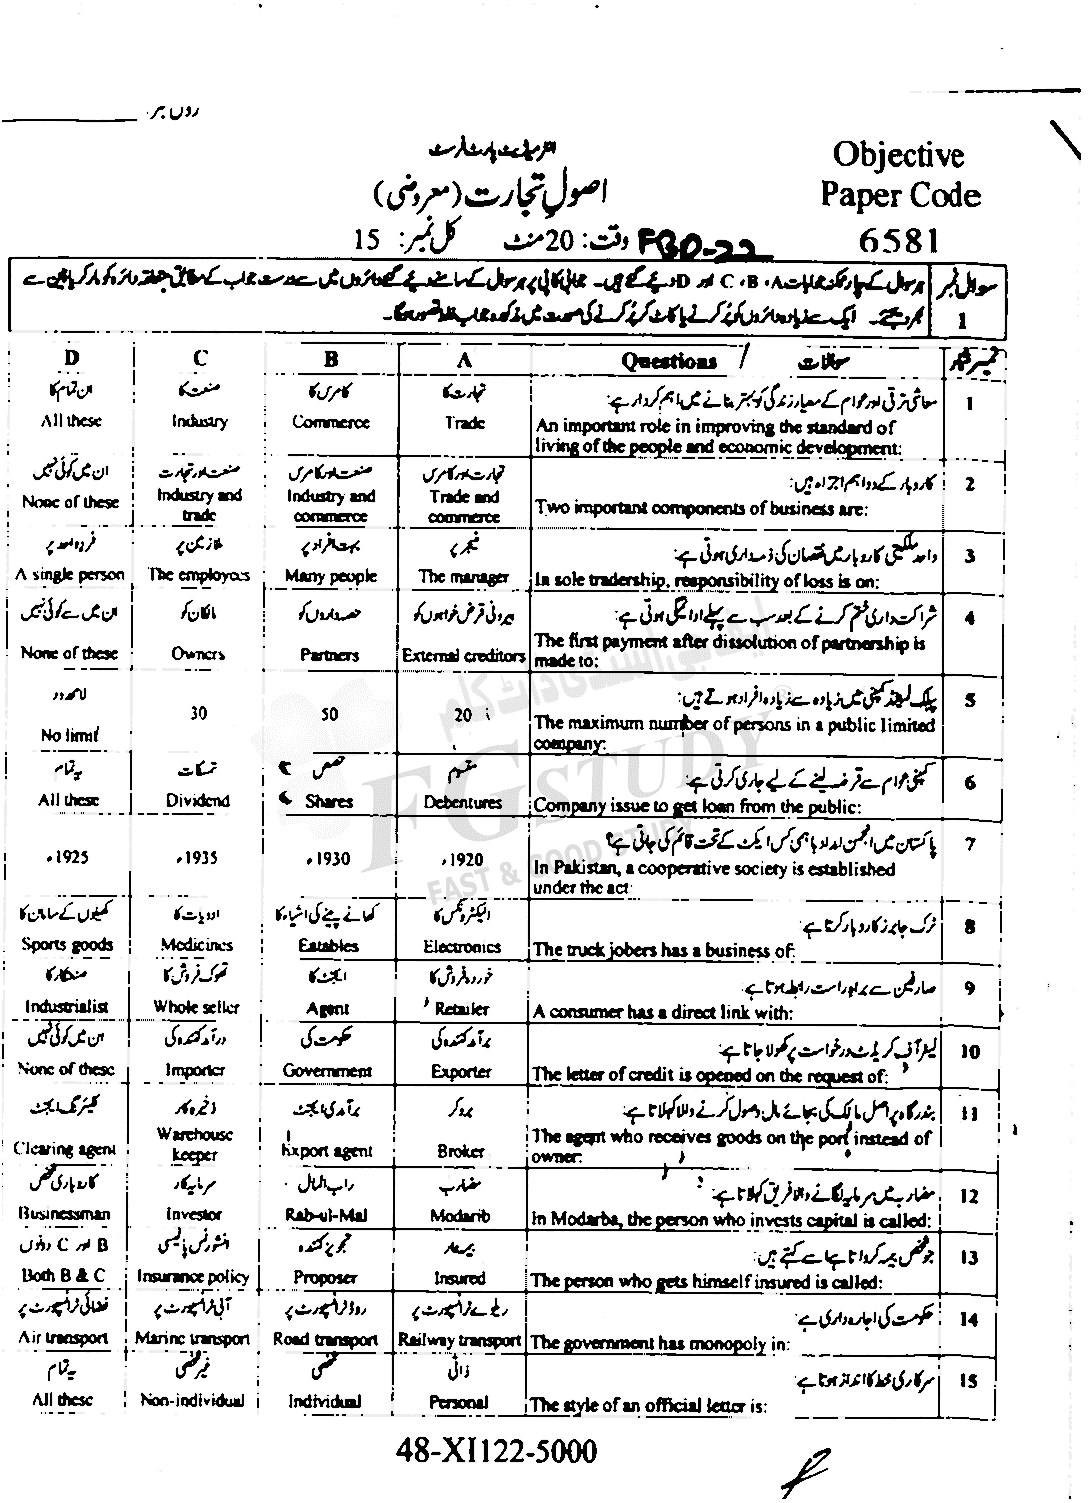 رول نمبر
انٹرمیڈیٹ پارٹ فرسٹ
Objective
اصولِ تجارت (معروضی)
Paper Code
وقت: 20 منٹ کل نمبر: 15
6581
سوال نمبر 1
ہر سوال کے چار ممکنہ جوابات A، B، C اور D دیئے گئے ہیں۔ جوابی کاپی پر ہر سوال کے سامنے دیئے گئے دائروں میں سے درست جواب کے مطابق متعلقہ دائرہ کو مارکر یا پین سے
بھر دیجئے۔ ایک سے زیادہ دائروں کو پُر کرنے یا کاٹ کر پُر کرنے کی صورت میں مذکورہ جواب غلط تصور ہوگا۔
D C B A Questions / سوالات نمبر شمار
ان تمام کا صنعت کا کامرس کا تجارت کا معاشی ترقی اور عوام کے معیار زندگی کو بہتر بنانے میں اہم کردار ہے: 1
All these Industry Commerce Trade An important role in improving the standard of
living of the people and economic development:
ان میں کوئی نہیں صنعت اور تجارت صنعت اور کامرس تجارت اور کامرس کاروبار کے دو اہم اجزاء ہیں: 2
None of these Industry and trade Industry and commerce Trade and commerce Two important components of business are:
فرد واحد پر ملازمین پر بہت افراد پر منیجر پر واحد ملکیتی کاروبار میں نقصان کی ذمہ داری ہوتی ہے: 3
A single person The employees Many people The manager In sole tradership, responsibility of loss is on:
ان میں سے کوئی نہیں مالکان کو حصہ داروں کو بیرونی قرض خواہوں کو شراکت داری ختم کرنے کے بعد سب سے پہلے ادائیگی ہوتی ہے: 4
None of these Owners Partners External creditors The first payment after dissolution of partnership is
made to:
لامحدود پبلک لمیٹڈ کمپنی میں زیادہ سے زیادہ افراد ہوتے ہیں: 5
No limit 30 50 20 The maximum number of persons in a public limited
company:
یہ تمام تمسکات حصص کمپنی عوام سے قرضہ لینے کے لیے جاری کرتی ہے: 6
All these Dividend Shares Debentures Company issue to get loan from the public:
پاکستان میں انجمن امداد باہمی کس ایکٹ کے تحت قائم کی جاتی ہے؟ 7
1925ء 1935ء 1930ء 1920ء In Pakistan, a cooperative society is established
under the act:
کھیلوں کے سامان کا ادویات کا کھانے پینے کی اشیاء کا الیکٹرونکس کا ٹرک جابرز کاروبار کرتا ہے: 8
Sports goods Medicines Eatables Electronics The truck jobers has a business of:
صنعتکار کا تھوک فروش کا ایجنٹ کا خوردہ فروش کا صارفین سے براہ راست رابطہ ہوتا ہے: 9
Industrialist Whole seller Agent Retailer A consumer has a direct link with:
ان میں کوئی نہیں درآمد کنندہ کی حکومت کی برآمد کنندہ کی لیٹر آف کریڈٹ درخواست پر کھولا جاتا ہے: 10
None of these Importer Government Exporter The letter of credit is opened on the request of:
کلیئرنگ ایجنٹ ذخیرہ کار برآمدی ایجنٹ بروکر بندرگاہ پر اصل مالک کی بجائے مال وصول کرنے والا کہلاتا ہے: 11
Clearing agent Warehouse keeper Export agent Broker The agent who receives goods on the port instead of
owner:
کاروباری شخص سرمایہ کار راب المال مضارب مضاربہ میں سرمایہ لگانے والا فریق کہلاتا ہے: 12
Businessman Investor Rab-ul-Mal Modarib In Modarba, the person who invests capital is called:
B اور C دونوں انشورنس پالیسی تجویز کنندہ بیمہ دار جو شخص بیمہ کرواتا ہے اسے کہتے ہیں: 13
Both B & C Insurance policy Proposer Insured The person who gets himself insured is called:
فضائی ٹرانسپورٹ پر آبی ٹرانسپورٹ پر روڈ ٹرانسپورٹ پر ریلوے ٹرانسپورٹ پر حکومت کی اجارہ داری ہے: 14
Air transport Marine transport Road transport Railway transport The government has monopoly in:
یہ تمام غیر شخصی شخصی ذاتی سرکاری خط کا انداز ہوتا ہے: 15
All these Non-individual Individual Personal The style of an official letter is:
48-XI122-5000
FG STUDY
FAST & GOOD STUDY